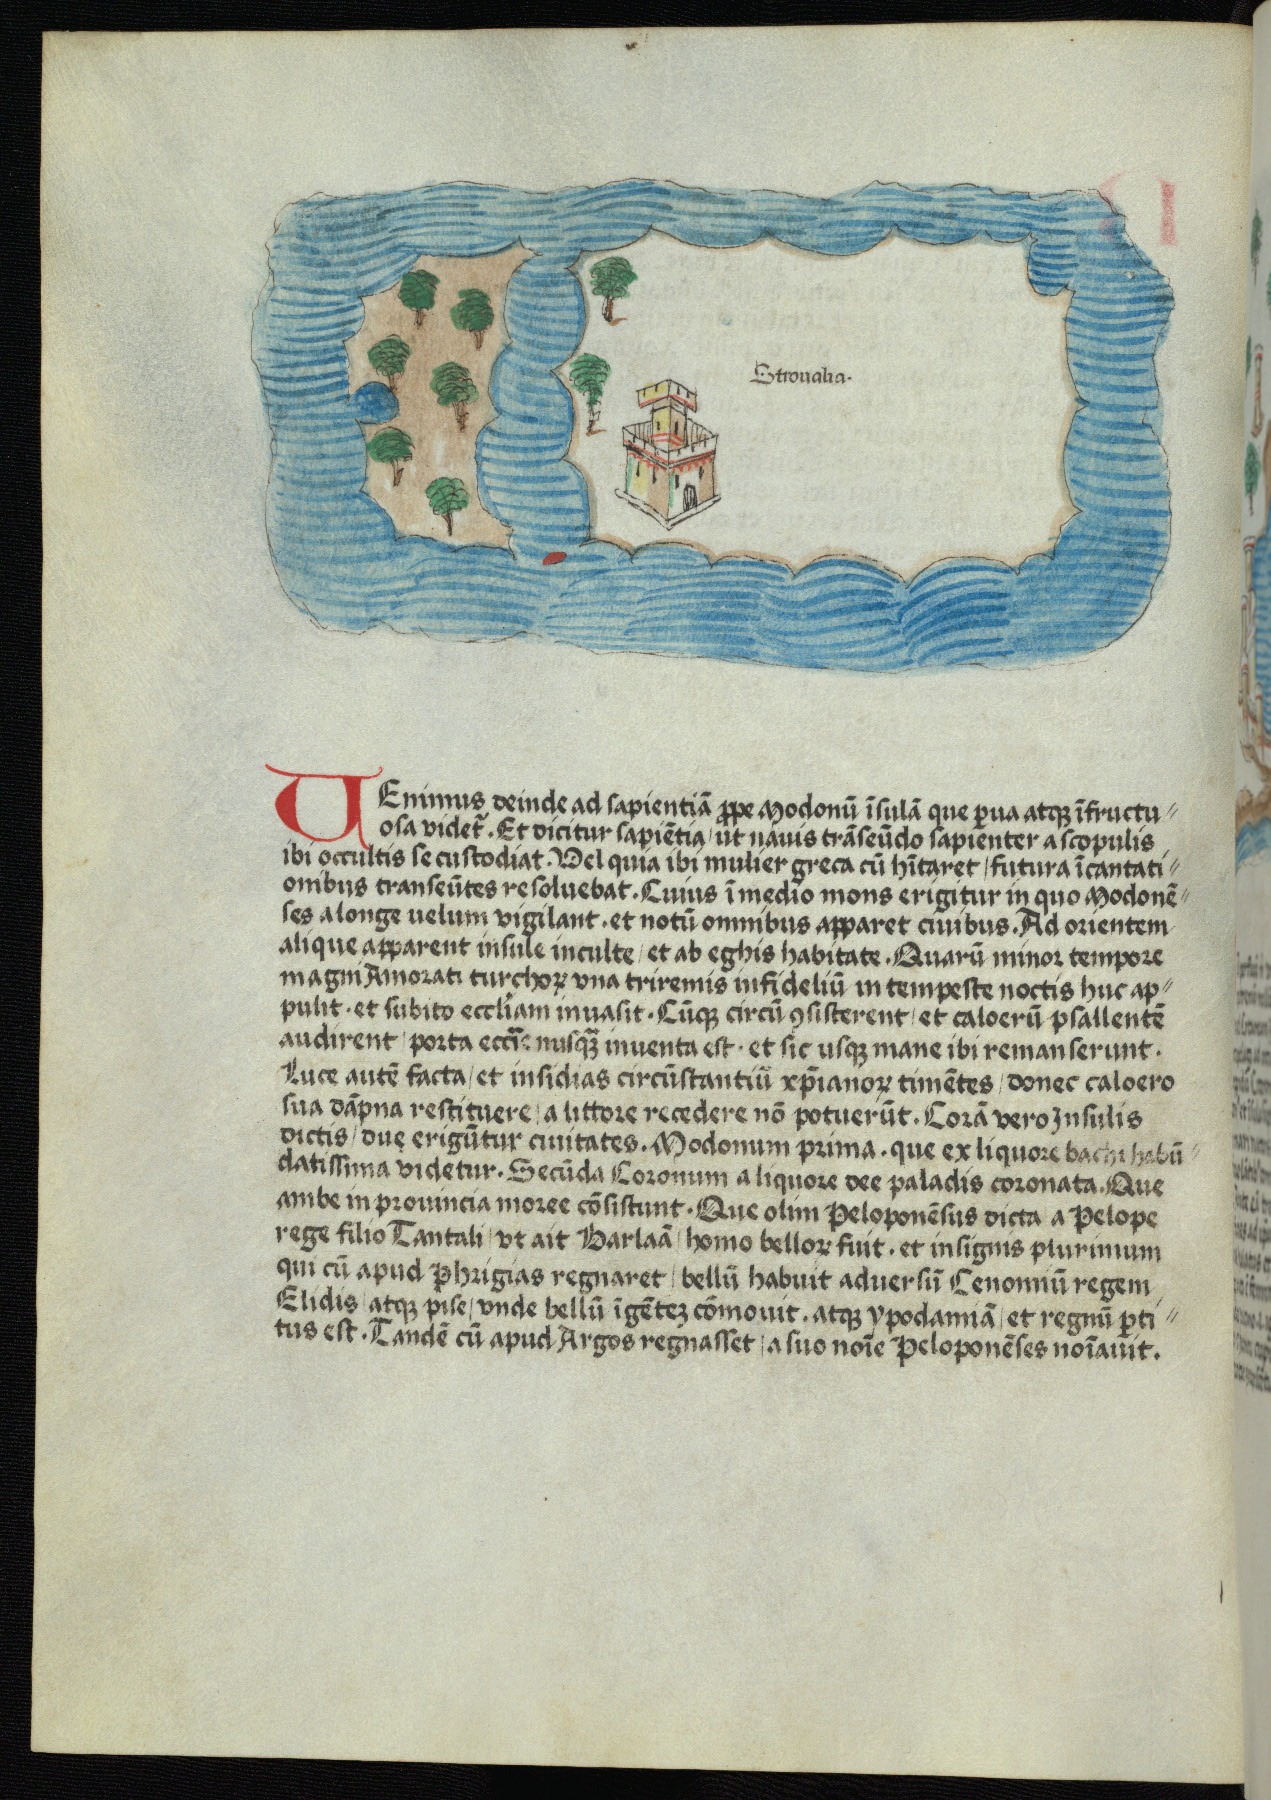 Strovalia.
VEnimus deinde ad sapientiã ꝓpe Modonũ ĩsulã que ꝑua atqꝫ ĩfructu〃
osa videt᷑. Et dicitur sapiẽtia / ut navis trãseũdo sapienter a scopulis
ibi occultis se custodiat. Vel quia ibi mulier greca cũ hĩtaret / futura ĩcantati〃
onibus transeũtes resoluebat. Cuius ĩ medio mons erigitur in quo Modonẽ〃
ses a longe uelum vigilant. et notũ omnibus apparet civibus. Ad orientem
alique apparent insule inculte / et ab eghis habitate. Quarũ minor tempore
magni Amorati turchoꝝ vna triremis infideliũ in tempeste noctis huc ap〃
pulit. et subito eccliam inuasit. Cũqꝫ circũ ꝯsisterent / et caloerũ psallentẽ
audirent / porta nusqꝫ inventa est. et sic usqꝫ mane ibi remanserunt.
Luce autẽ facta / et insidias circũstantiũ xp̃ianoꝝ timẽtes / donec caloero
sua dãpna restituere / a littore recedere nõ potuerũt. Corã vero Insulis
dictis / due erigũtur civitates. Modonum prima. que ex liquore bachi habũ〃
datissima videtur. Secũda Coronum a liquore dee paladis coronata. Que
ambe in provincia moree cõsistunt. Que olim Peloponẽsus dicta a Pelope
rege filio Tantali / vt ait Barlaã / homo belloꝝ fuit. et insignis plurimum
qui cũ apud Phrigias regnaret / bellũ habuit aduersũ Cenomiũ regem
Elidis / atqꝫ pise / vnde bellũ ĩgẽteꝫ cõmovit. atqꝫ ypodamiã / et regnũ ꝑti〃
tus est. Tandẽ cũ apud Argos regnasset / a suo noĩe Peloponẽses noĩavit.